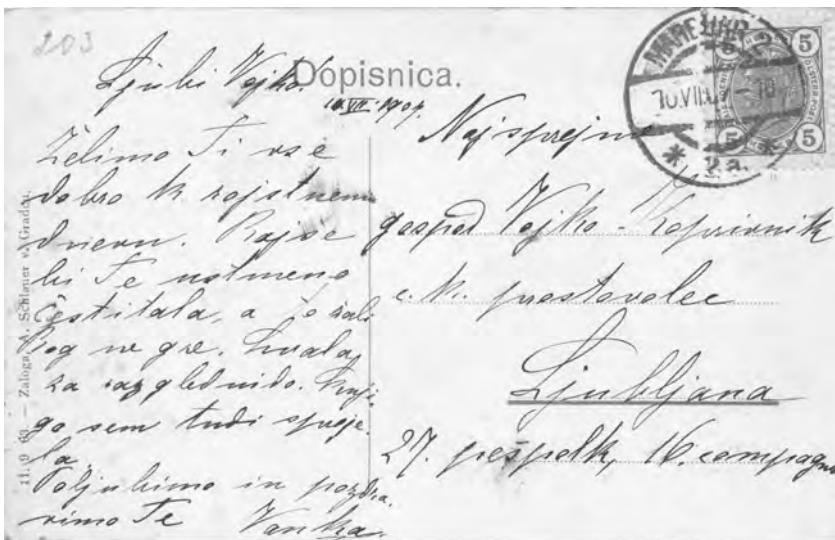 203
Dopisnica.
Ljubi Vojko!
10.VII.1907.
Želimo Ti vse
dobro k rojstnemu
dnevu. Rajše
bi Te ustmeno
čestitala, a to žali
Bog ne gre. Hvala
za razglednico. Knji-
go sem tudi spreje-
la
Poljubimo in pozdra-
vimo Te Vanka.
11. 9 03 — Zaloga A. Schlauer v Gradcu.
MARBURG
10.VII.
* 2a. *
5 5
5 5
Najsprejme
gospod Vojko Koprivnik
c. k. prostovolec
Ljubljana
27. pešpolk, 16. compagn